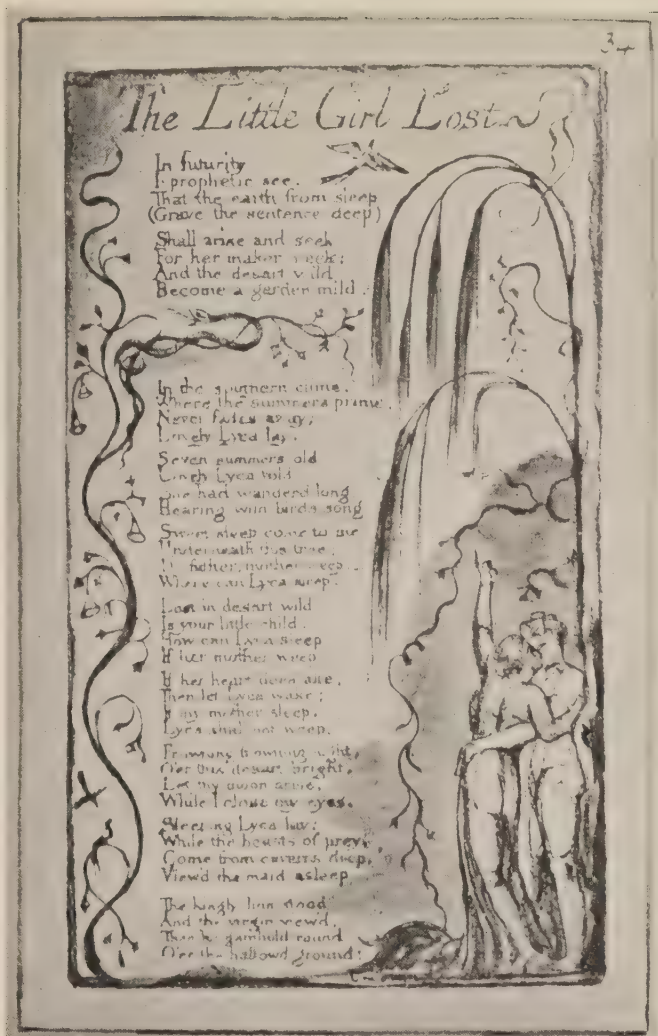 34
The Little Girl Lost
In futurity
I prophetic see,
That the earth from sleep
(Grave the sentence deep)
Shall arise and seek
For her maker meek:
And the desart wild
Become a garden mild.
In the southern clime,
Where the summers prime,
Never fades away;
Lovely Lyca lay.
Seven summers old
Lovely Lyca told
She had wanderd long
Hearing wild birds song
Sweet sleep come to me
Underneath this tree,
father, mother weep
Where can Lyca sleep.
Lost in desart wild
Is your little child.
How can Lyca sleep
If her mother weep
If her heart does ake,
Then let Lyca wake;
If my mother sleep,
Lyca shall not weep.
Frowning frowning night,
O'er this desart bright,
Let thy moon arise,
While I close my eyes.
Sleeping Lyca lay;
While the beasts of prey,
Come from caverns deep,
View'd the maid asleep
The kingly lion stood
And the virgin view'd,
Then he gambold round
O'er the hallowd ground: